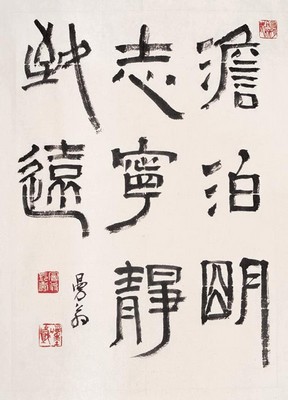 澹泊明
志寧靜
致遠
曼翁